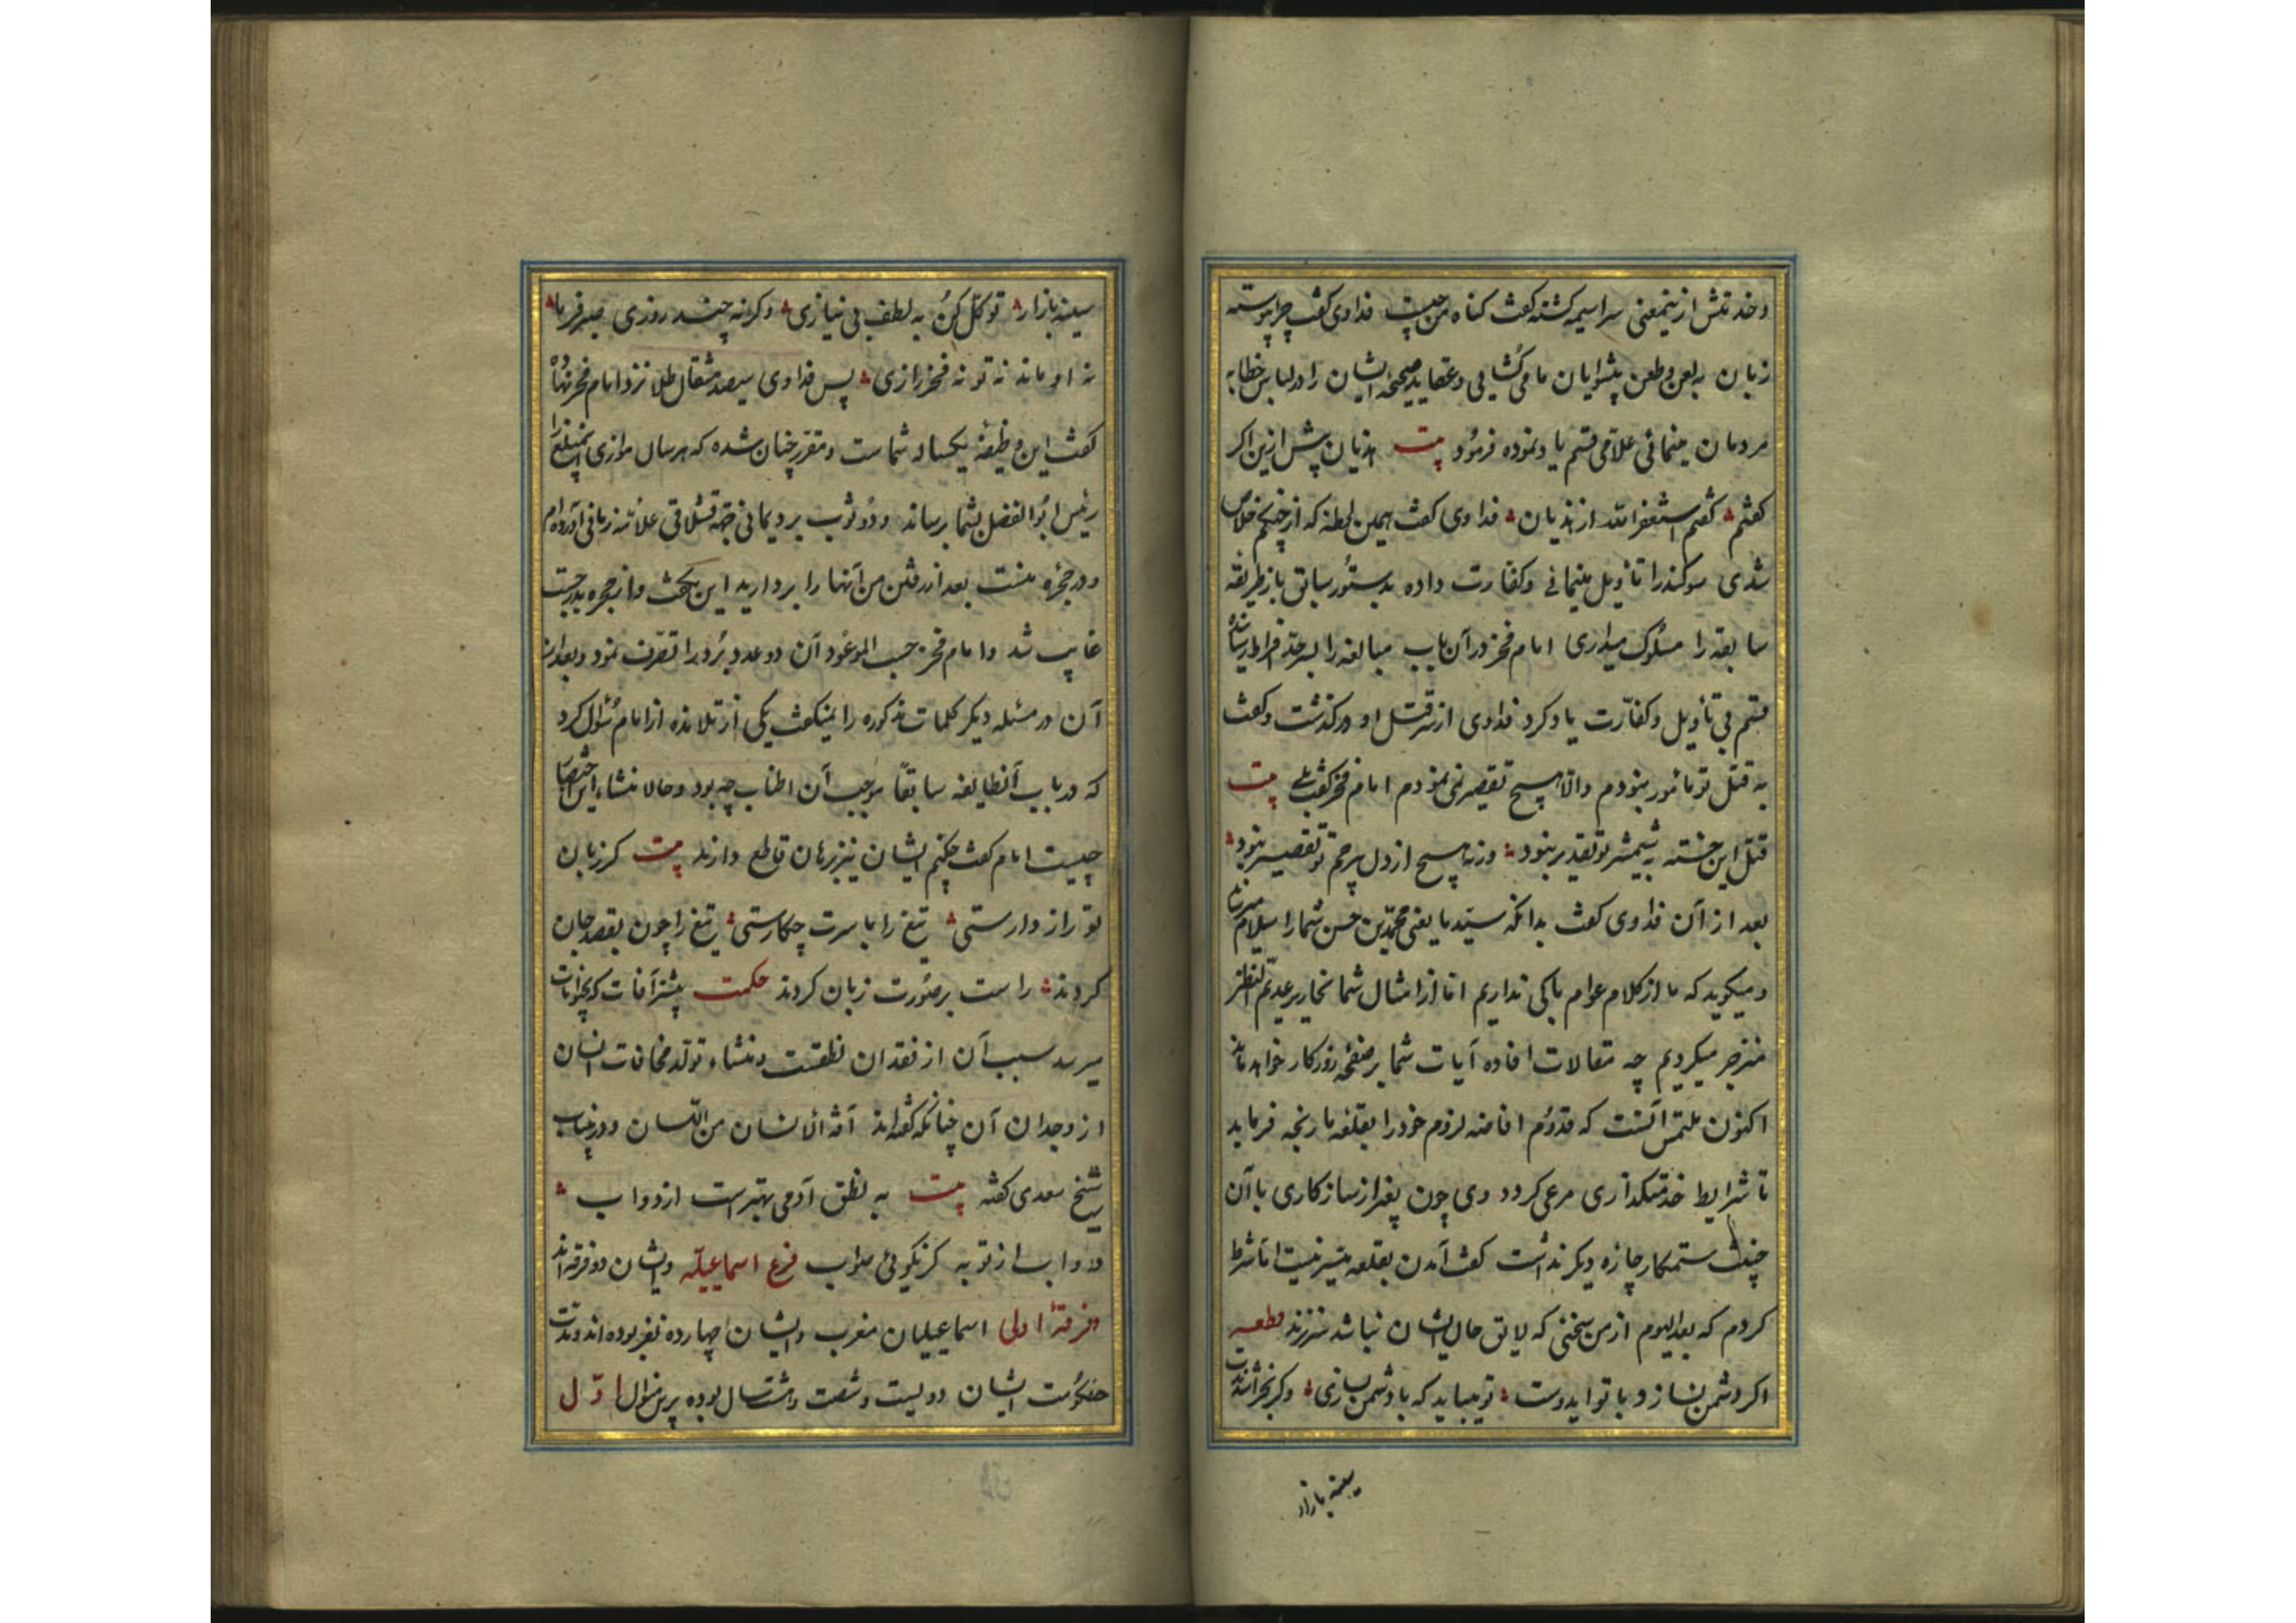 و خدتتش ازینمعنی سراسیمه گشته گفت گناه من چیست فداوی گفت چرا پیوسته
زبان به لعن و طعن پیشوایان ما می گشایی و عقاید صحیحه ایشان را در لباس خطا به
مردمان مینمائی علامی قسم یاد نموده فرمود بیت هذیان پیش ازین اگر
گفتم گفتم استغفرالله از هذیان فداوی گفت همین لحظه که از چنگم خلاص
شدی سوگند را تأویل مینمائی و کفارت داده بدستور سابق باز طریقه
سابقه را مسلوک میداری امام فخر در آن باب مبالغه را بسرحد افراط رسانده
قسم بی تأویل و کفارت یاد کرد فداوی از سر قتل او درگذشت و گفت
به قتل تو مأمور نبودم والا هیچ تقصیر نمی نمودم امام فخر گفت بلی بیت
قتل این خسته به شمشیر تو تقدیر نبود ورنه هیچ از دل بیرحم تو تقصیر نبود
بعد از آن فداوی گفت بدانکه سید ما یعنی محمد بن حسن شما را سلام میرساند
و میگوید که ما از کلام عوام باکی نداریم اما از امثال شما نحاریر عدیم النظیر
منزجر میگردیم چه مقالات افاده آیات شما بر صفحه روزگار خواهد ماند
اکنون ملتمس آنست که قدوم افاضه لزوم خود را بقلعه ما رنجه فرماید
تا شرایط خدمتگذاری مرعی گردد وی چون بغیر از سازگاری با آن
چنان ستمکار چاره دیگر نداشت گفت آمدن بقلعه میسر نیست اما شرط
کردم که بعد الیوم از من سخنی که لایق حال ایشان نباشد سر نزند قطعه
اگر دشمن نسازد با تو ایدوست تو میباید که با دشمن بسازی وگر بخراشدت
سینه بازار
سینه بازار توکل کن به لطف بی نیازی وگرنه چند روزی صبر فرما
نه او ماند نه تو نه فخر رازی پس فداوی سیصد مثقال طلا نزد امام فخر نهاد
گفت این وظیفه یکساله شماست و مقرر چنان شده که هر سال موازی اینمبلغ را
رئیس ابوالفضل بشما رساند و دو ثوب برد یمانی جهة علامه زمانی آورده ام
و در حجره منست بعد از رفتن من آنها را بردارید این بگفت و از حجره بدرجست
غایب شد و امام فخر حسب الموعود آن دو عدد برد را تصرف نمود و بعد از
آن در مسئله دیگر کلمات مذکوره را نمیگفت یکی از تلامذه از امام سؤال کرد
که در باب آنطایفه سابقا موجب آن اطناب چه بود و حالا منشاء این اختصار
چیست امام گفت چکنم ایشان نیز برهان قاطع دارند بیت گر زبان
تو راز دارستی تیغ را با سرت چکارستی تیغ را چون بقصد جان
کردند راست بر صورت زبان کردند حکمت بیشتر آفات که بحیوانات
میرسد سبب آن از فقدان نطقست و منشاء تولد مخافات انسان
از وجدان آن چنانکه گفته اند آفة الانسان من اللسان و درینباب
شیخ سعدی گفته بیت به نطق آدمی بهترست از دواب
دواب از تو به گر نگوئی صواب فرع اسماعیلیه و ایشان دو فرقه اند
فرقهٔ اولی اسماعیلیان مغرب و ایشان چهارده نفر بوده اند و مدت
حکومت ایشان دویست و شصت و هشتسال بوده برین منوال اوّل